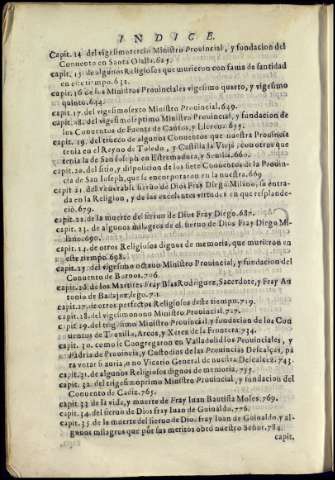 INDICE.
Capit. 14 del vigesimotercio Ministro Provincial, y fundacion del
Convento en Santa Olalla. 625.
capit. 15 de algunos Religiosos que murieron con fama de santidad
en este tiempo. 632.
capit. 16 de los Ministros Provinciales vigesimo quarto, y vigesimo
quinto. 634.
capit. 17. del vigesimo sexto Ministro Provincial. 649.
capit. 18. del vigesimo septimo Ministro Provincial, y fundacion de
los Conventos de Fuente de Cantos, y Llerena. 655.
capit. 19. del trueco de algunos Conventos que nuestra Provincia
tenia en el Reyno de Toledo, y Castilla la Vieja con otros que
tenia la de San Joseph en Estremadura, y Sevilla. 660.
capit. 20. del sitio, y disposicion de los siete Conventos de la Provin-
cia de San Joseph, que se encorporaron en la nuestra. 669
capit 21. del venerable siervo de Dios Fray Diego Milano, su entra-
da en la Religion, y de las excelentes virtudes en que resplande-
ciò. 679.
capit. 22. de la muerte del siervo de Dios Fray Diego. 687.
capit. 23. de algunos milagros de el siervo de Dios Fray Diego Mi-
lano. 690.
capit. 24. de otros Religiosos dignos de memoria, que murieron en
este tiempo. 698.
capit. 25. del vigesimo octavo Ministro Provincial, y fundacion del
Convento de Bornos. 706.
capit. 26. de los Martires Fray Blas Rodriguez, Sacerdote, y Fray An-
tonio de Badajoz, lego. 711.
capit. 27. de otros perfectos Religiosos deste tiempo. 719.
capit. 28. del vigesimonono Ministro Provincial. 727.
capit. 29. del trigesimo Ministro Provincial, y fundacion de los Con
ventos de Truxillo, Arcos, y Xerez de la Frontera. 734.
capit. 30. como se Congregaron en Valladolid los Provinciales, y
Padres de Provincia, y Custodios de las Provincias Descalças, pa
ra votar si avria, o no Vicario General de nuestra Descalcez. 743.
capit. 31. de algunos Religiosos dignos de memoria. 755.
capit. 32. del trigesimoprimo Ministro Provincial, y fundacion del
Convento de Cadiz. 765.
capit. 33 de la vida, y muerte de Fray Juan Bautista Moles. 769.
capit. 34. del siervo de Dios fray Juan de Guinaldo. 776.
capit. 35 de la muerte del siervo de Dios, fray Juan de Guinaldo, y al-
gunos milagros que por sus meritos obrò nuestro Señor. 784.
capit.